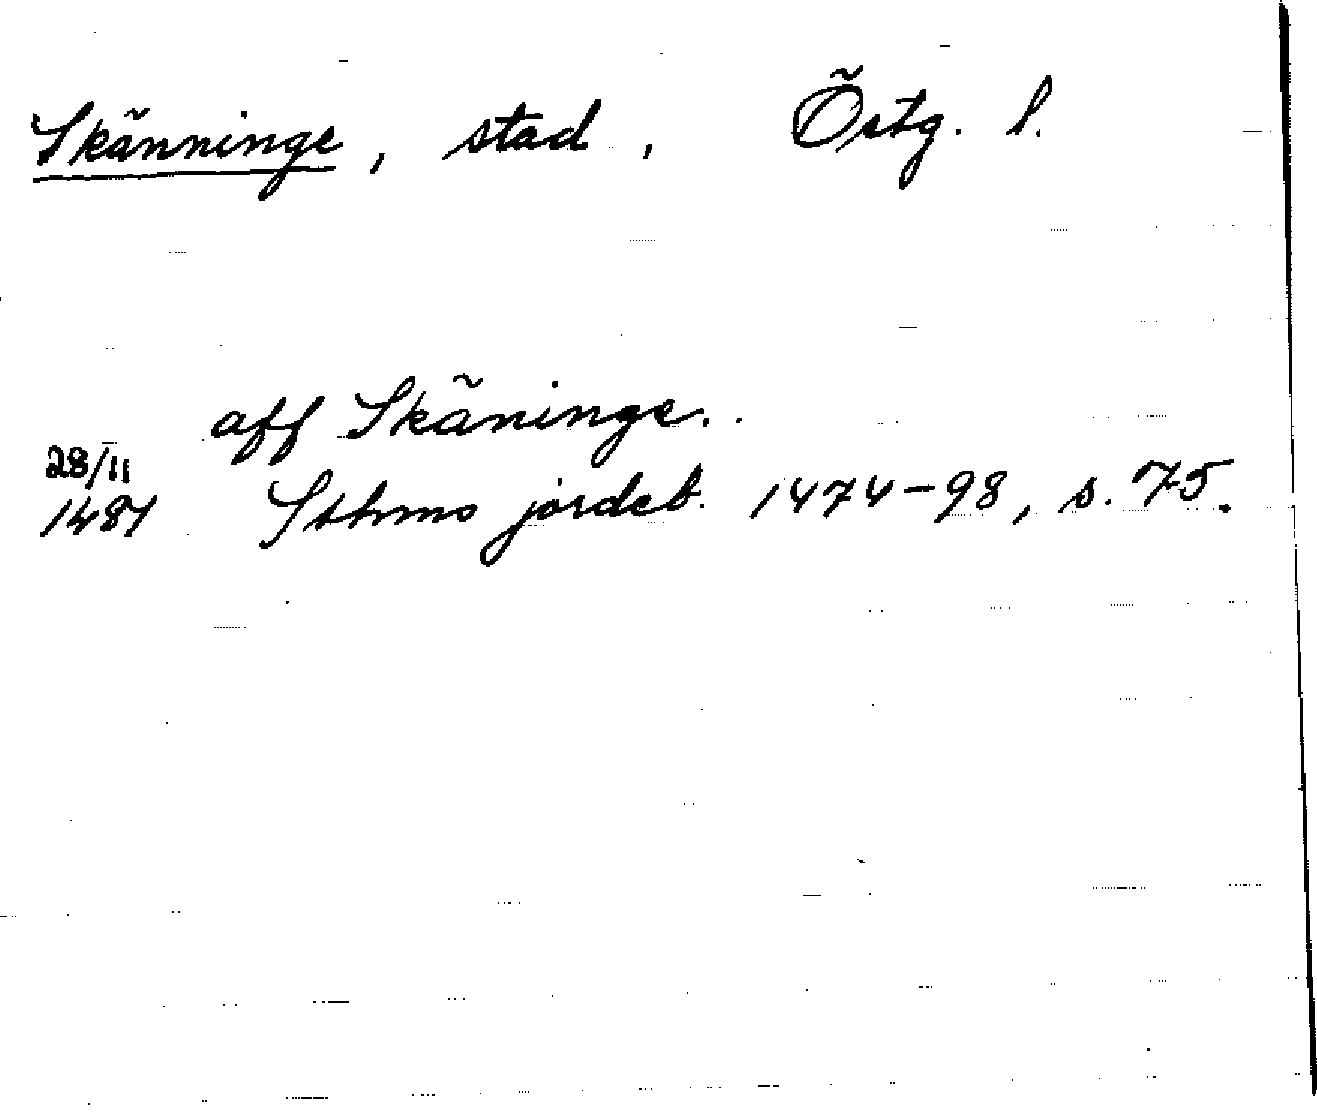 Skänninge, stad, Östg. l.
aff Skäninge.
28/11
1487 Sthms jordeb. 1474-98, s. 75.